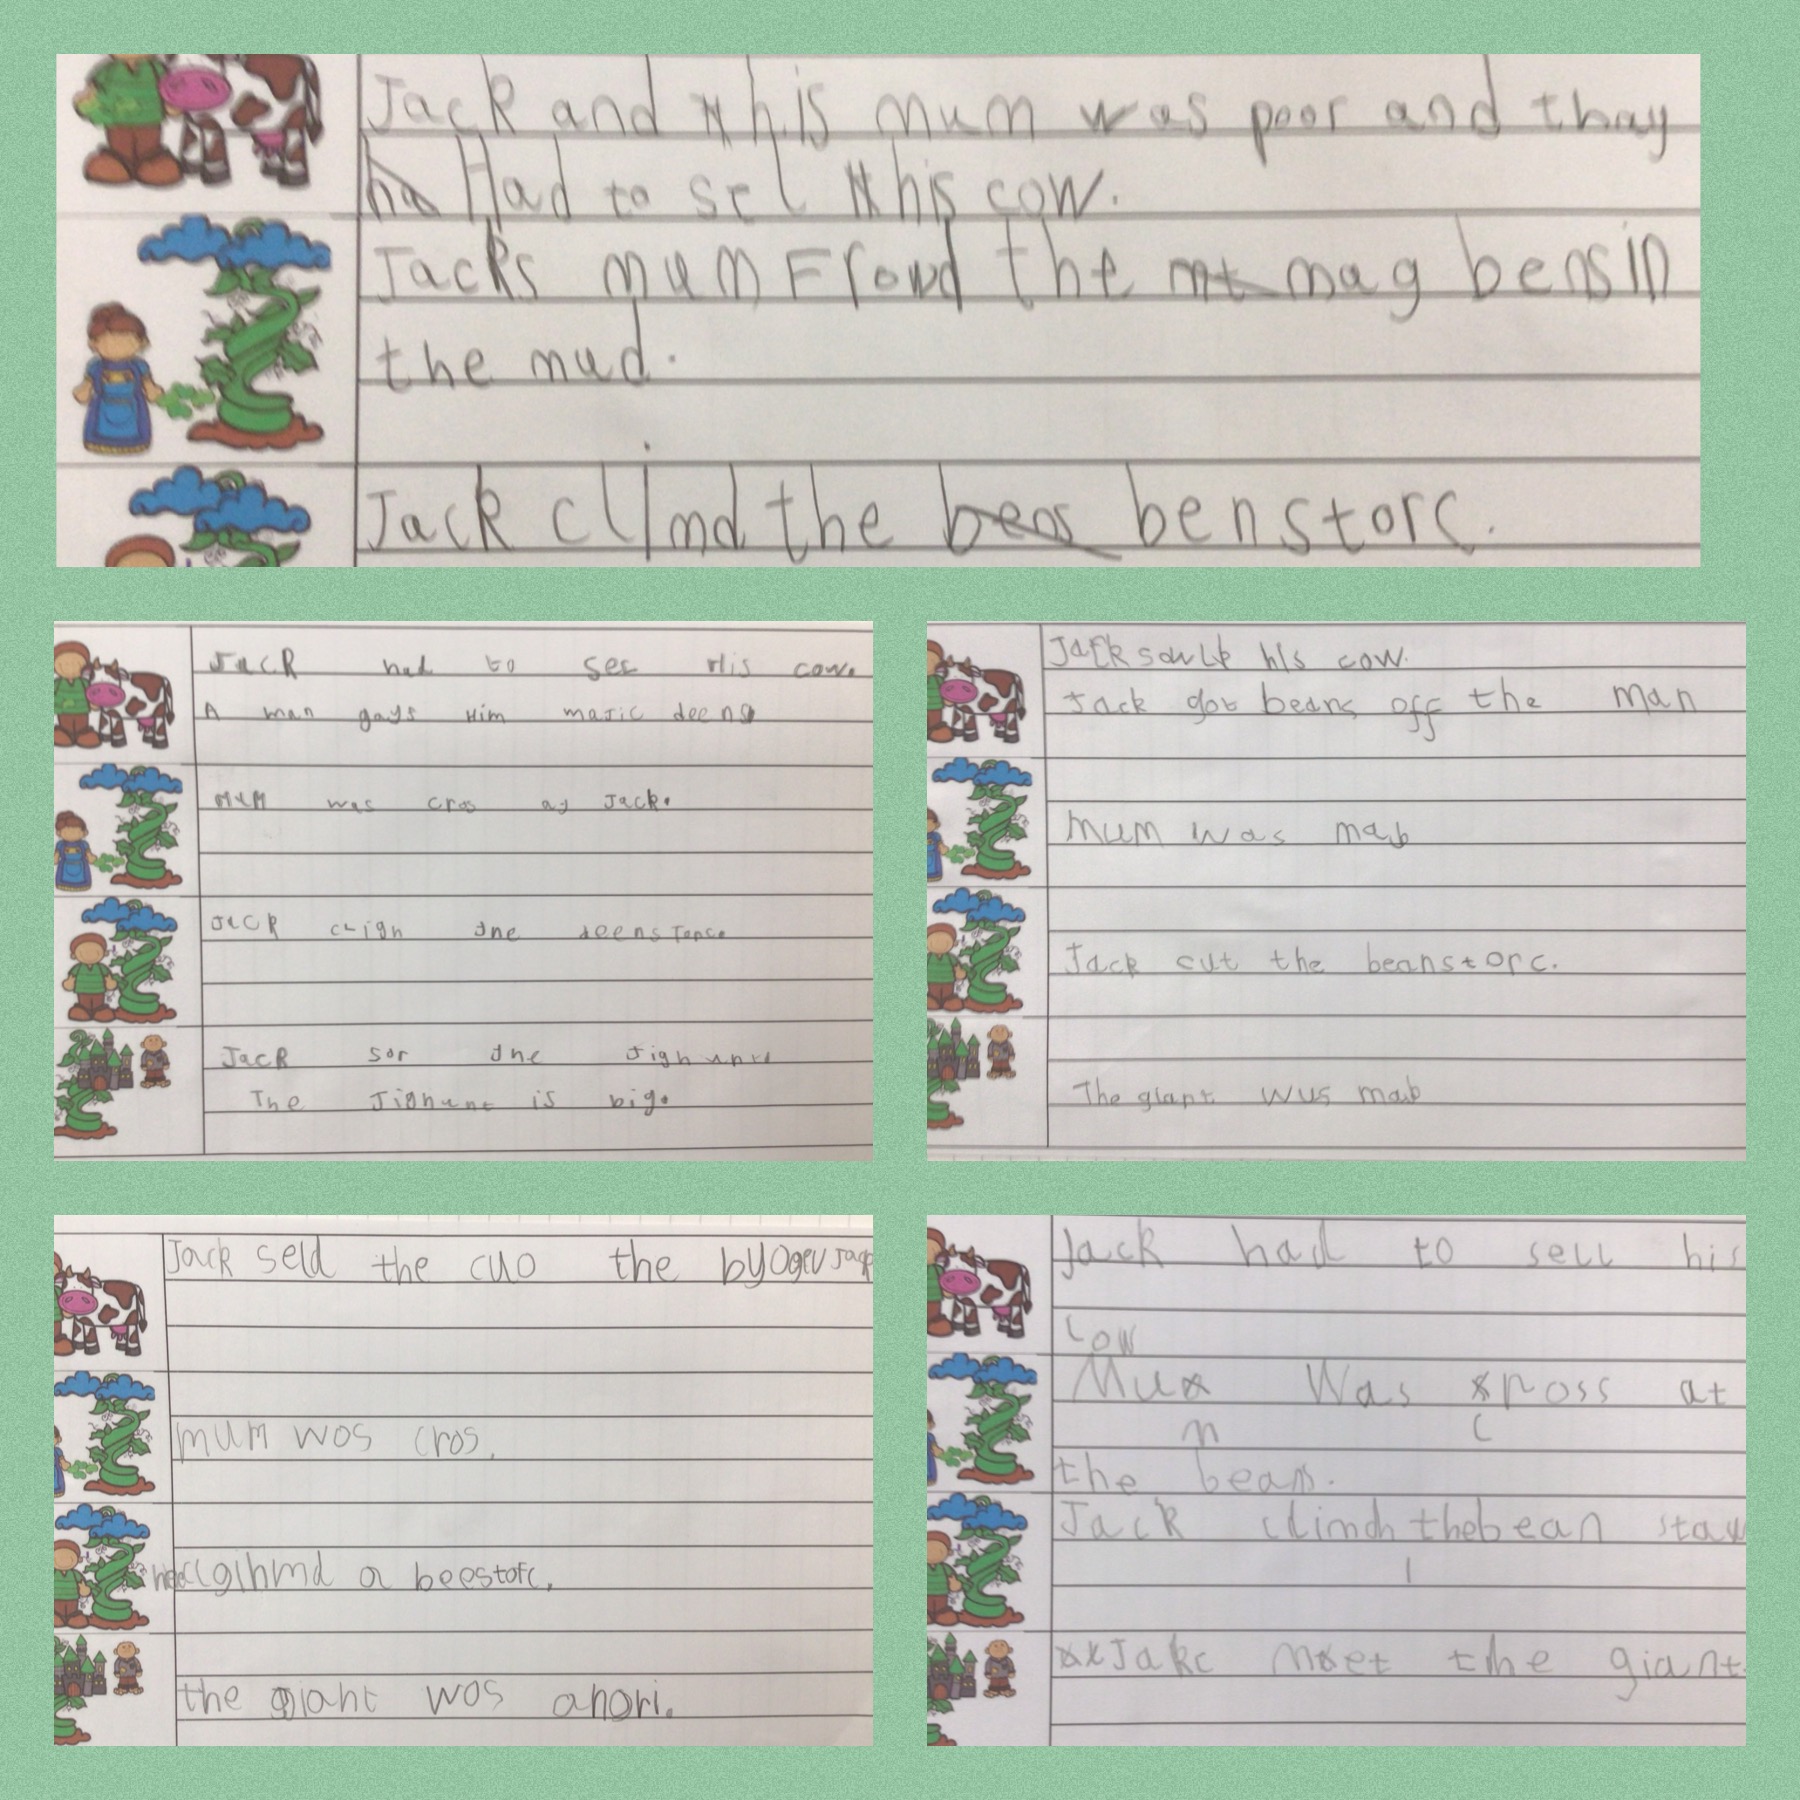 Jack and his mum was poor and thay
Had to sel his cow.
Jacks mum Frowd the mag bens in
the mud.
Jack climd the benstorc.
Jack had to sec His cow.
A man gays Him majic deens
mum was cros at Jack.
Jack cligh the
Jack sor the
The Jighunt is big.
Jack his cow.
Jack got beans off the man
mum was mab
Jack cut the beanstorc.
The giant wus mab
Jack seld the cuo the byOgev Jack
mum wos cros.
a beestorc.
the giant wos angri.
Jack had to sell his
cow
Mum was cross at
the beans.
Jack climd the bean
Jakc meet the giant